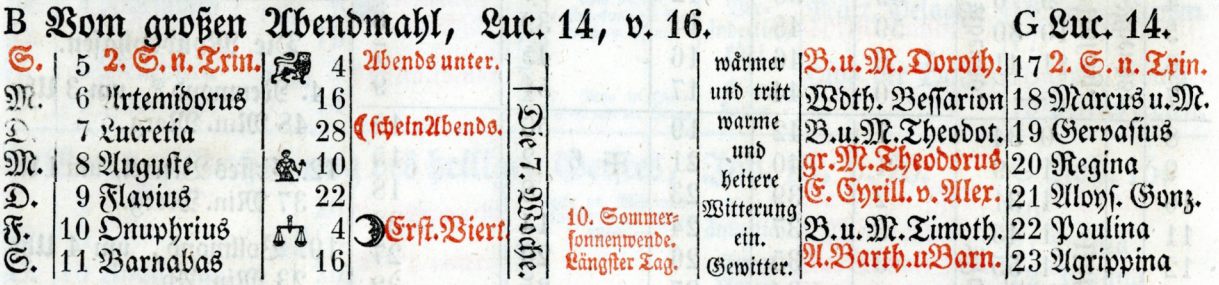 B Vom großen Abendmahl, Luc. 14, v. 16. G Luc. 14.
S. 5 2. S. n. Trin. 4 Abends unter. wärmer B. u. M. Doroth. 17 2. S. n. Trin.
M. 6 Artemidorus 16 und tritt Wdth. Bessarion 18 Marcus u. M.
D. 7 Lucretia 28 schein Abends. warme B. u. M. Theodot. 19 Gervasius
M. 8 Auguste 10 und gr. M. Theodorus 20 Regina
D. 9 Flavius 22 heitere E. Cyrill. v. Alex. 21 Aloys. Gonz.
F. 10 Onuphrius 4 Erst. Viert. 10. Sommer- Witterung B. u. M. Timoth. 22 Paulina
sonnenwende. ein.
S. 11 Barnabas 16 Längster Tag. Gewitter. A. Barth. u Barn. 23 Agrippina
Die Woche.